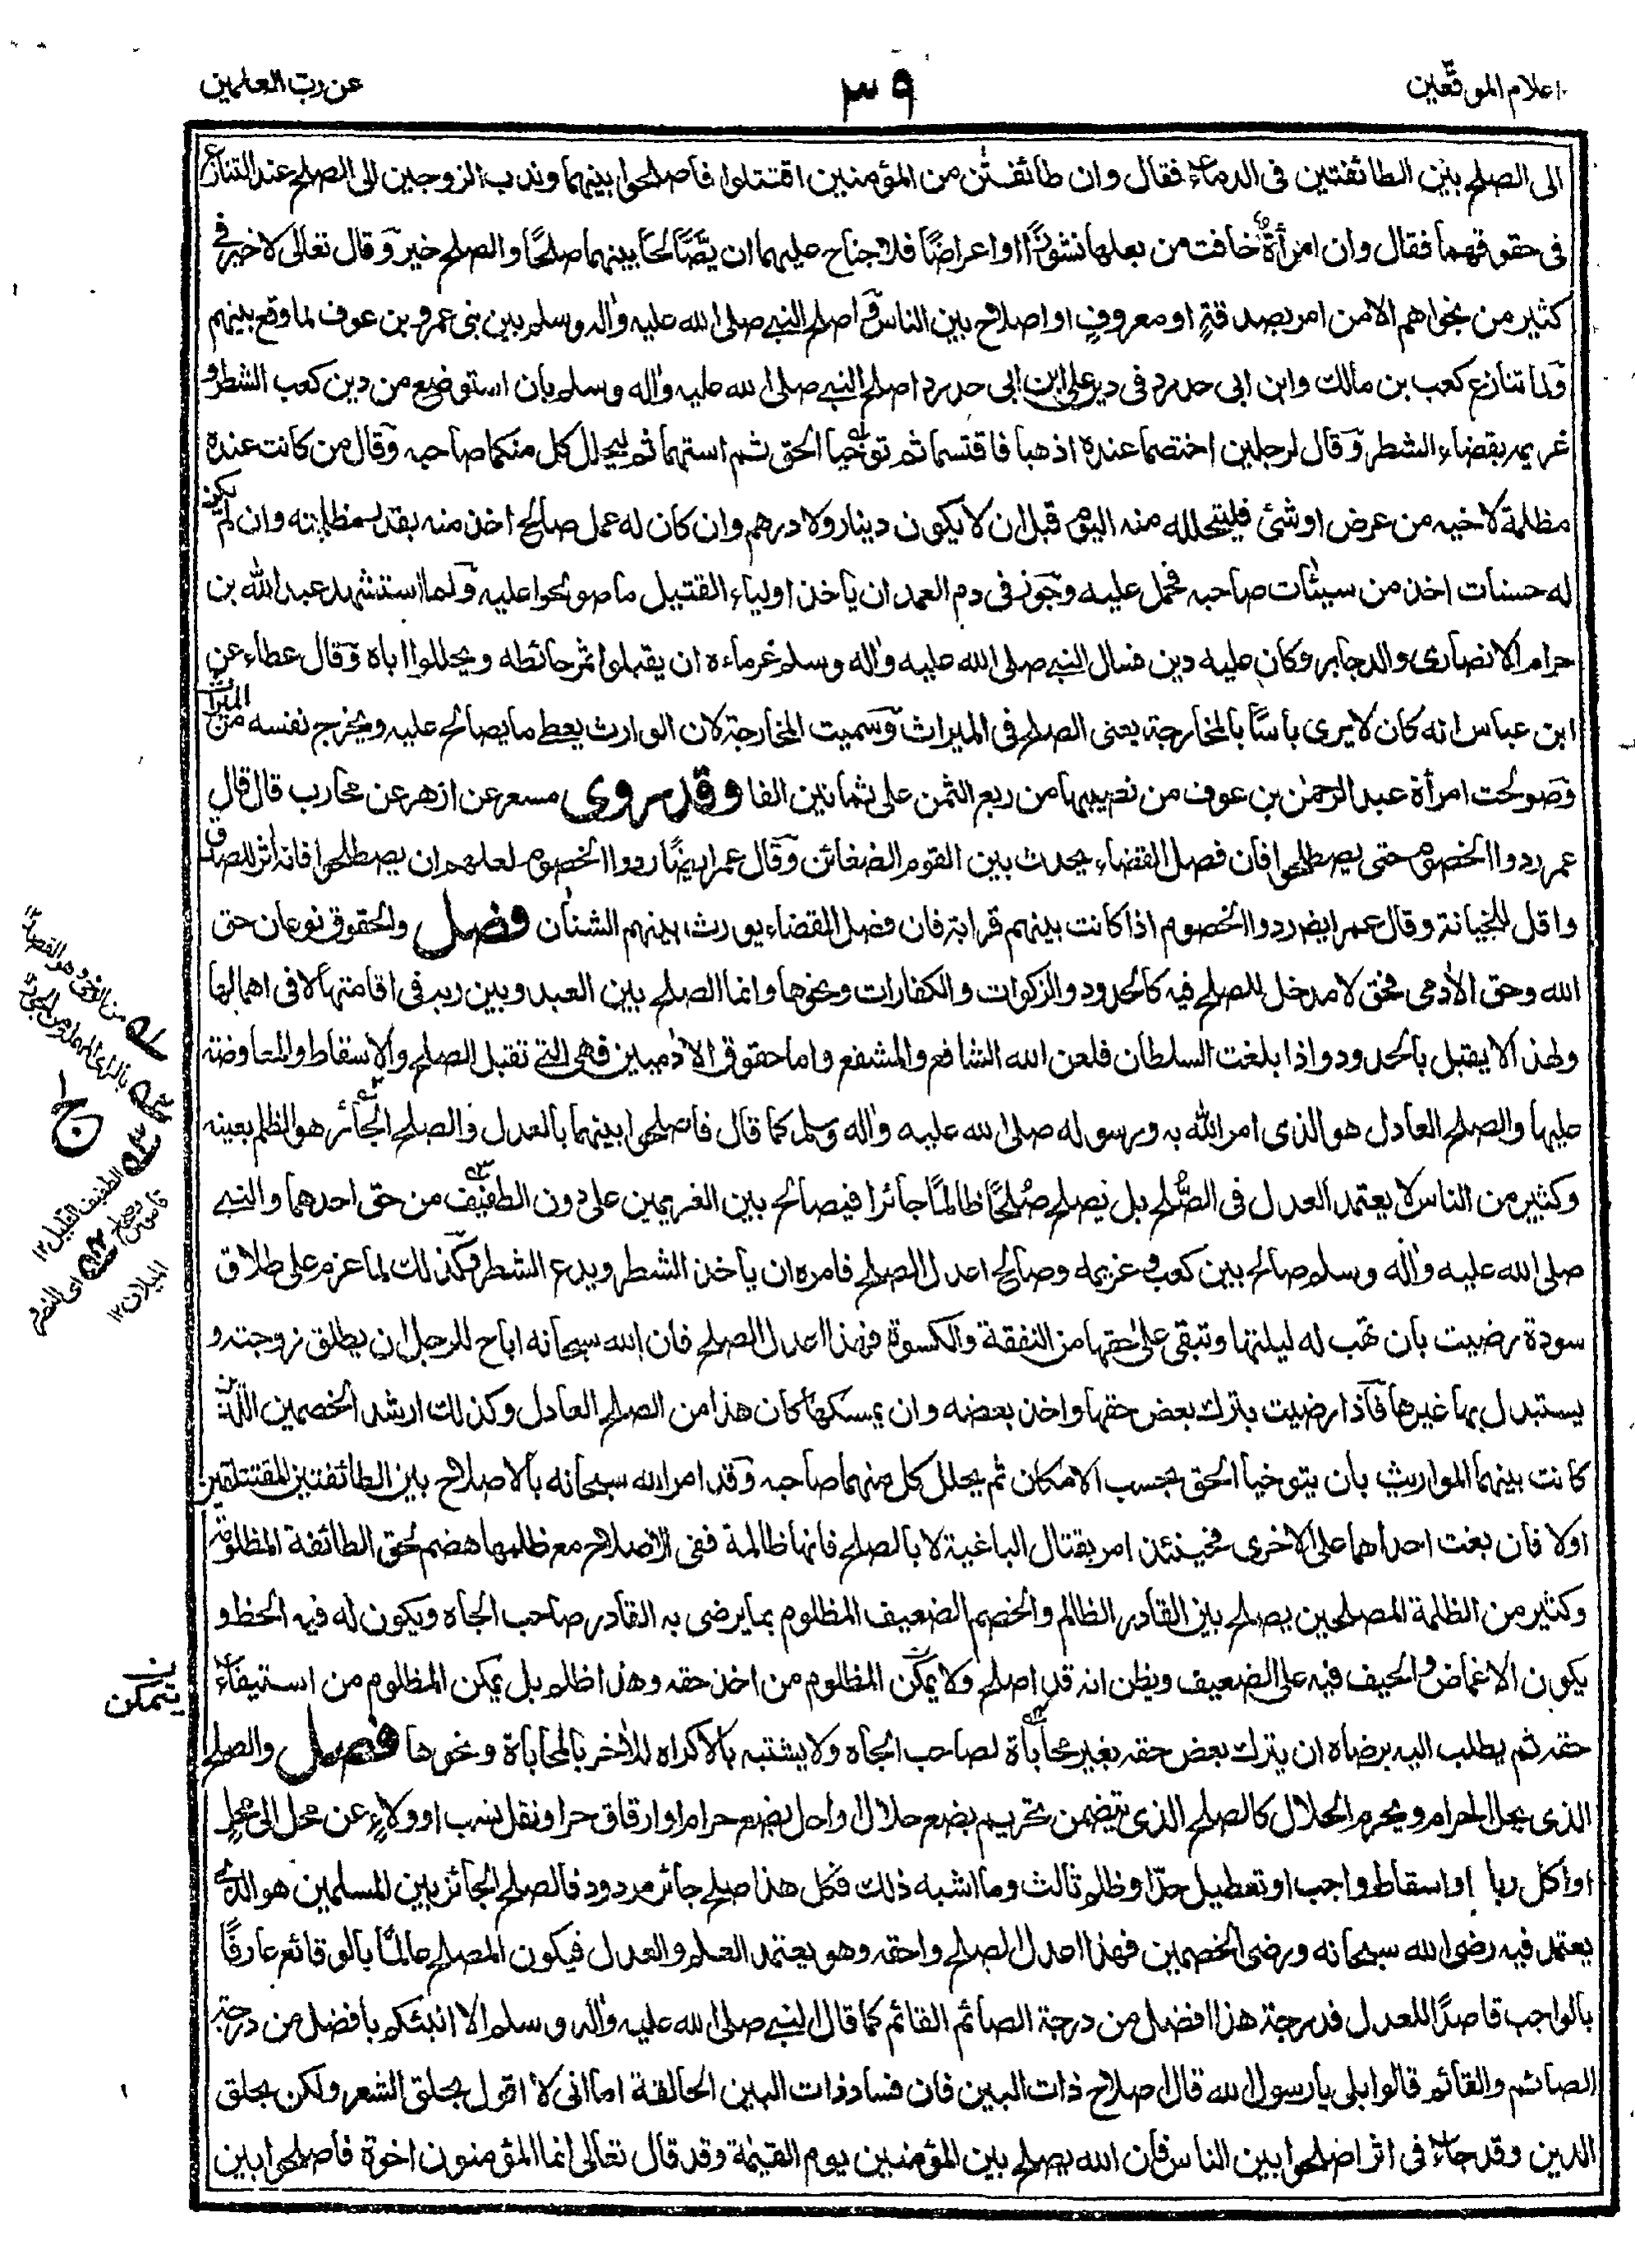 اعلام الموقّعين
٣٩
عن رب العلمين
الى الصلح بين الطائفتين فى الدماء فقال وان طائفتٰن من المؤمنين اقتتلوا فاصلحوا بينهما وندب الزوجين الى الصلح عند التنازع
فى حقوقهما فقال وان امرأة خافت من بعلها نشوزًا او اعراضًا فلا جناح عليهما ان يصّالحا بينهما صلحًا والصلح خير وقال تعالى لا خير فى
كثير من نجواهم الا من امر بصدقةٍ او معروفٍ او اصلاح بين الناس و اصلح النبى صلى الله عليه واٰله وسلم بين بنى عمرو بن عوف لما وقع بينهم
ولما تنازع كعب بن مالك وابن ابى حدرد فى دين على ابن ابى حدرد اصلح النبى صلى الله عليه واٰله وسلم بان استوضع من دين كعب الشطر و
غريمه بقضاء الشطر و قال لرجلين اختصما عنده اذهبا فاقتسما ثم توخيا الحق ثم استهما ثم ليحلل كل منكما صاحبه وقال من كانت عنده
مظلمة لاخيه من عرض او شئ فليتحلله منه اليوم قبل ان لا يكون دينار ولا درهم وان كان له عمل صالح اخذ منه بقدر مظلمته وان لم يكن
له حسنات اخذ من سيئات صاحبه فحمل عليه وجوز فى دم العمد ان ياخذ اولياء القتيل ما صولحوا عليه ولما استشهد عبد الله بن
حرام الانصارى والد جابر وكان عليه دين فسال النبى صلى الله عليه واٰله وسلم غرماءه ان يقبلوا ثمر حائطه ويحللوا اباه وقال عطاء عن
ابن عباس انه كان لا يرى بأسًا بالمخارجة يعنى الصلح فى الميراث وسميت المخارجة لان الوارث يعط ما يصالح عليه ويخرج نفسه من الميراث
وصولحت امرأة عبد الرحمٰن بن عوف من نصيبها من ربع الثمن على ثمانين الفا وقد روى مسعر عن ازهر عن محارب قال قال
عمر ردوا الخصوم حتى يصطلحوا فان فصل القضاء يحدث بين القوم الضغائن وقال عمر ايضًا ردوا الخصوم لعلهم ان يصطلحوا فانه اثر للصدق
واقل للخيانة وقال عمر ايض ردوا الخصوم اذا كانت بينهم قرابة فان فصل القضاء يورث بينهم الشناٰن فصل والحقوق نوعان حق
الله وحق الاٰدمى فحق لا مدخل للصلح فيه كالحدود والزكوات والكفارات ونحوها وانما الصلح بين العبد وبين ربه فى اقامتها لا فى اهمالها
ولهذا لا يقبل بالحدود واذا بلغت السلطان فلعن الله الشافع والمشفع واما حقوق الاٰدميين فهى التى تقبل الصلح والاسقاط والمعاوضة
عليها والصلح العادل هو الذى امر الله به ورسوله صلى الله عليه واٰله وسلم كما قال فاصلحوا بينهما بالعدل والصلح الجائر هو الظلم بعينه
وكثير من الناس لا يعتمد العدل فى الصُّلح بل يصلح صُلحًا ظالمًا جائرا فيصالح بين الغريمين على دون الطفيف من حق احدهما والنبى
صلى الله عليه واٰله وسلم صالح بين كعب و غريمه وصالح اعدل الصلح فامره ان ياخذ الشطر ويدع الشطر وكذلك لما عزم على طلاق
سودة رضيت بان تهب له ليلتها وتبقى على حقها من النفقة والكسوة فهذا اعدل الصلح فان الله سبحانه اباح للرجل ان يطلق زوجته و
يستبدل بها غيرها فاذا رضيت بترك بعض حقها واخذ بعضه وان يمسكها كان هذا من الصلح العادل وكذلك ارشد الخصمين اللذين
كانت بينهما المواريث بان يتوخيا الحق بحسب الامكان ثم يحلل كل منهما صاحبه وقد امر الله سبحانه بالاصلاح بين الطائفتين المقتتلتين
اولا فان بغت احداهما على الاخرى فحينئذ امر بقتال الباغية لا بالصلح فانها ظالمة ففى الاصلاح مع ظلمها هضم لحق الطائفة المظلومة
وكثير من الظلمة المصلحين يصلح بين القادر الظالم والخصم الضعيف المظلوم بما يرضى به القادر صاحب الجاه ويكون له فيه الحظ و
يكون الاغماض والحيف فيه على الضعيف ويظن انه قد اصلح ولا يمكّن المظلوم من اخذ حقه وهذا ظلم بل يمكن المظلوم من استيفاء
حقه ثم يطلب اليه برضاه ان يترك بعض حقه بغير محاباة لصاحب الجاه ولا يشتبه بالاكراه للاٰخر بالمحاباة ونحوها فصل والصلح
الذى يحل الحرام ويحرم الحلال كالصلح الذى يتضمن تحريم بضع حلال او احل بضع حرام او ارقاق حر او نقل نسب او ولاءٍ عن محل الى محلٍ
او اكل ربا او اسقاط واجب او تعطيل حدّ او ظلم ثالث وما اشبه ذلك فكل هذا صلح جائر مردود فالصلح الجائز بين المسلمين هو الذى
يعتمد فيه رضى الله سبحانه ورضى الخصمين فهذا اعدل الصلح واحقه وهو يعتمد العلم والعدل فيكون المصلح عالمًا بالوقائع عارفًا
بالواجب قاصدًا للعدل فدرجة هذا افضل من درجة الصائم القائم كما قال النبى صلى الله عليه واٰله وسلم الا انبئكم بافضل من درجة
الصائم والقائم قالوا بلى يا رسول الله قال اصلاح ذات البين فان فساد ذات البين الحالقة اما انى لا اقول بحلق الشعر ولكن بحلق
الدين وقد جاء فى اثر اصلحوا بين الناس فان الله يصلح بين المؤمنين يوم القيٰمة وقد قال تعالى انما المؤمنون اخوة فاصلحوا بين
من التوخى وهو القصد ١٢
الطفيف القليل ١٢
الميلان ١٢
يتمكن